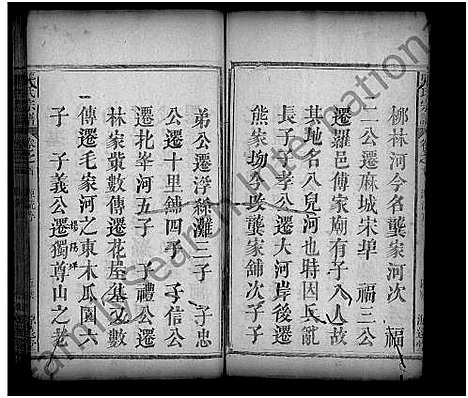 柳林河今名龔家河次 福
二公遷麻城宋埠 福三公
遷羅邑傅家廟有子八人故
其地名八兒河也特因民亂
長子子孝公遷大河岸後遷
熊家坳今㕥龔家舖次子子
弟公遷浮絲灘三子 子忠
公遷十里舖四子 子信公
遷北峯河五子 子禮公遷
林家冀數傳遷花屋基又數
傳遷毛家河之東木瓜園六
子 子義公遷獨尊山之老
楊𨻶坪
FamilySearch International